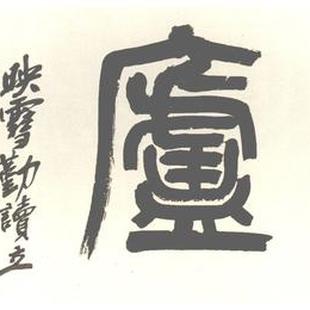 廬
映雪勤讀立